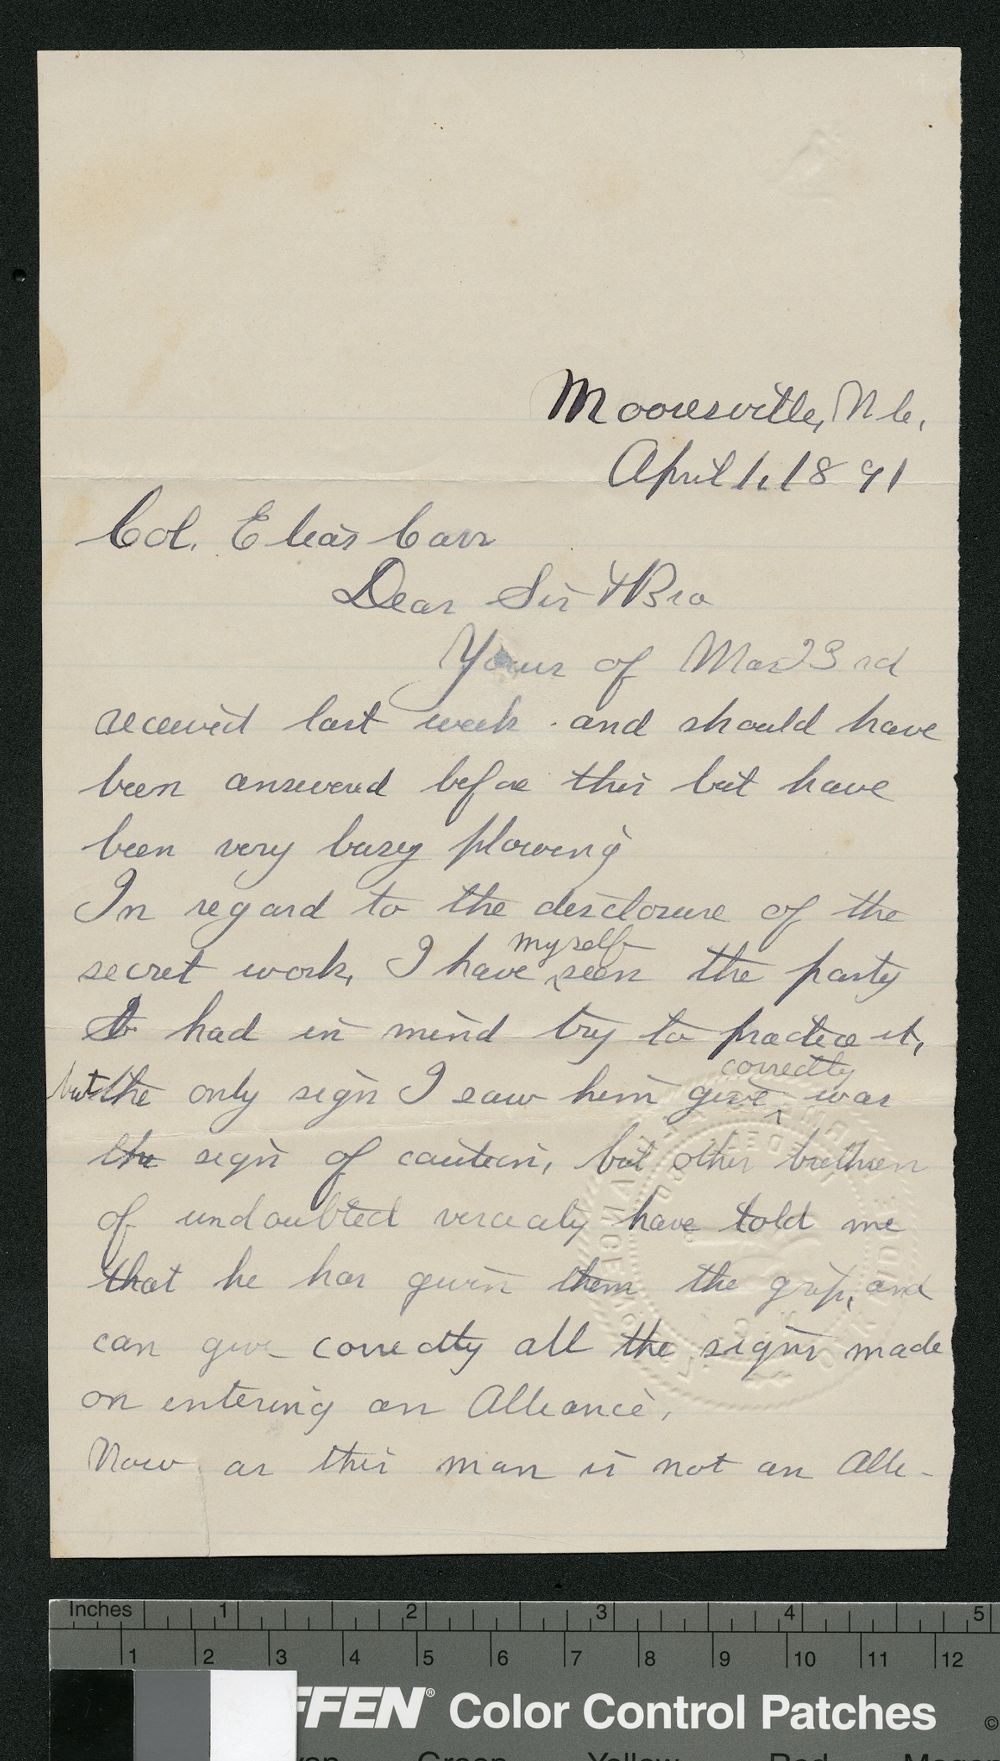 Mooresville, N.C.,
April 1, 1891
Col. Elias Carr
Dear Sir & Bro
Yours of Mar 23rd
received last week and should have
been answered before this but have
been very busy plowing
In regard to the disclosure of the
secret work, I have myself seen the party
I had in mind try to practice it,
but the only sign I saw him give correctly was
the sign of caution, but other brethren
of undoubted veracity have told me
that he has given them the grip, and
can give correctly all the signs made
on entering an Alliance.
Now as this man is not an Alli-
Inches 1 2 3 4 5
1 2 3 4 5 6 7 8 9 10 11 12
FFEN® Color Control Patches ©
Green Yellow Red